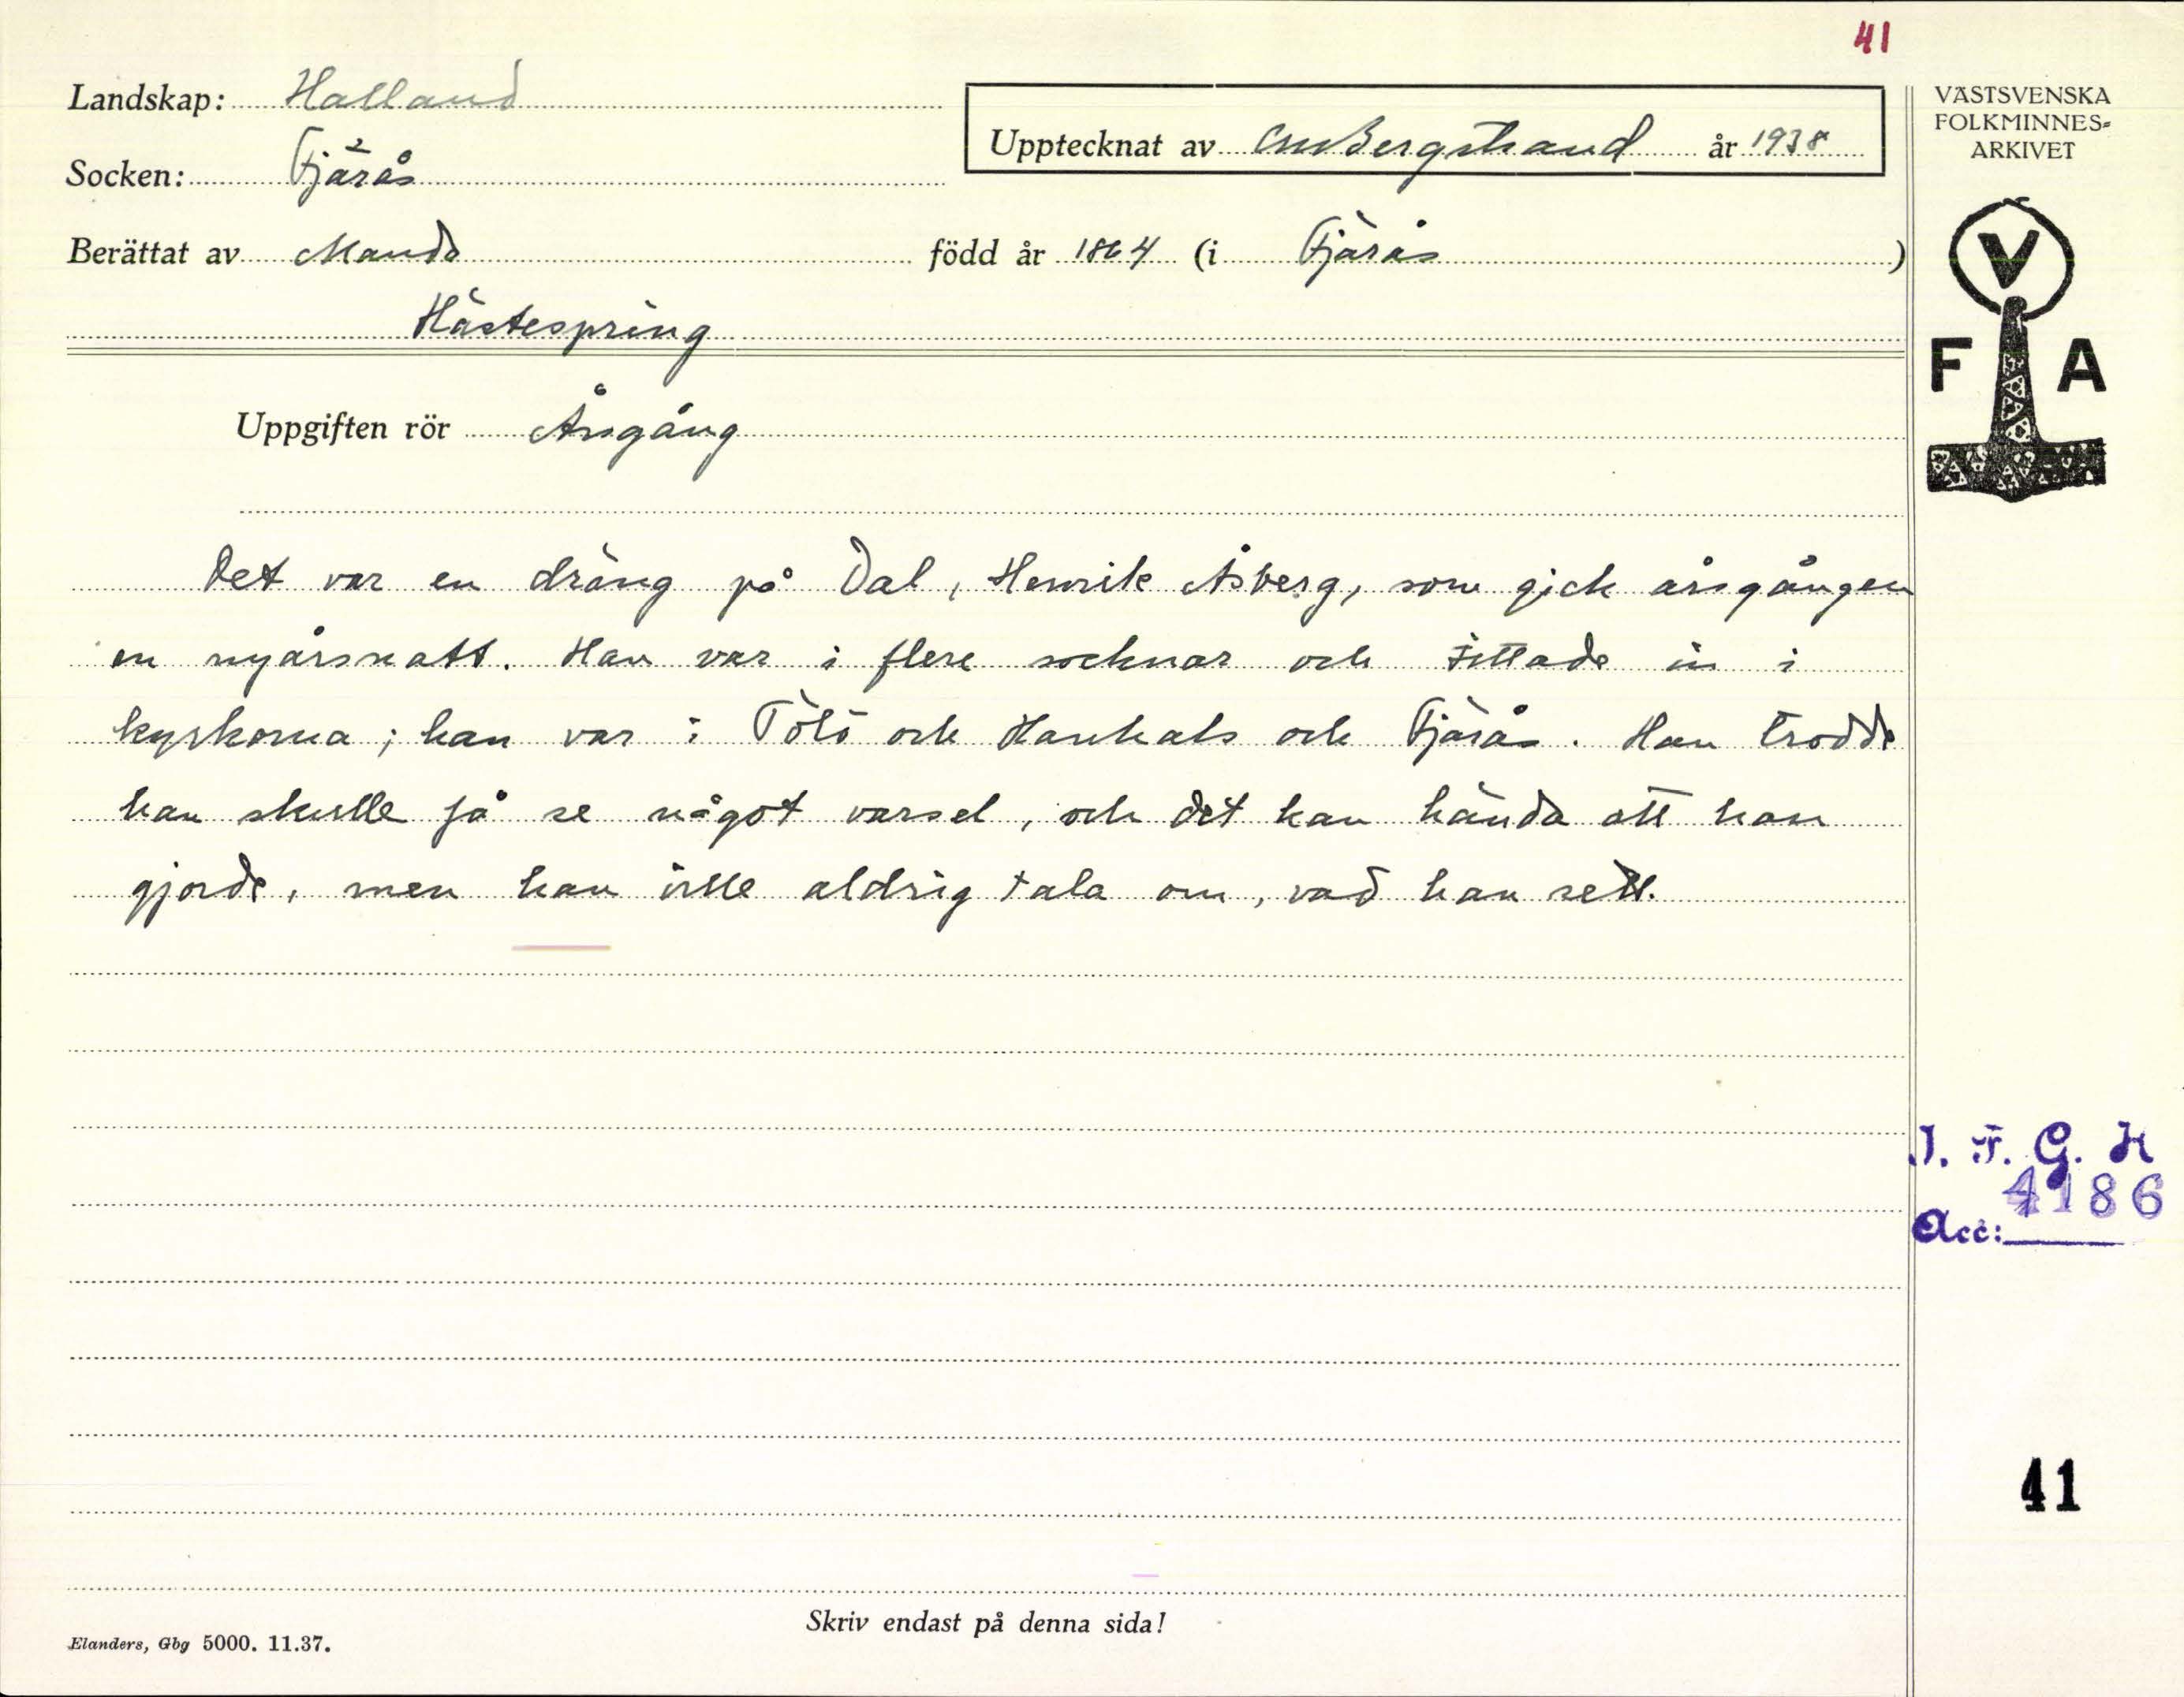 41
Landskap: Halland
VÄSTSVENSKA
FOLKMINNES-
ARKIVET
Upptecknat av CMBergstrand år 1938
Socken: Fjärås
Berättat av Manda född år 1864 (i Fjärås)
V
F A
Hästespring
Uppgiften rör Årsgång
Det var en dräng på Dal, Henrik Åsberg, som gick årsgången
en nyårsnatt. Han var i flere socknar och tittade in i
kyrkorna; han var i Tölö och Hanhals och Fjärås. Han trodde
han skulle få se något varsel, och det kan hända att han
gjorde, men han ville aldrig tala om, vad han sett.
I. F. G. H
4186
Acc:
41
Skriv endast på denna sida!
Elanders, Gbg 5000. 11.37.